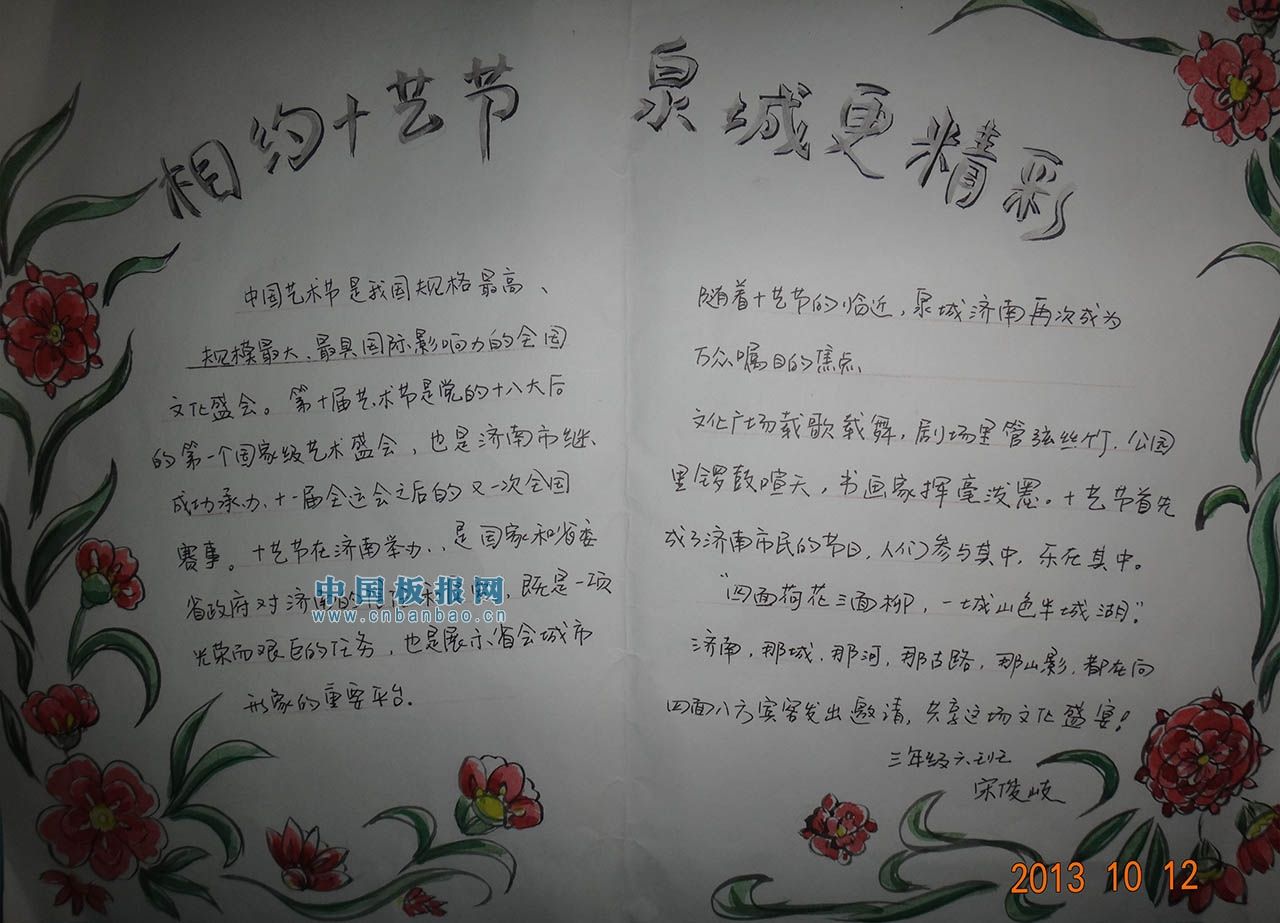 相约十艺节 泉城更精彩
中国艺术节是我国规格最高、
规模最大、最具国际影响力的全国
文化盛会。第十届艺术节是党的十八大后
的第一个国家级艺术盛会，也是济南市继、
成功承办、十一届全运会之后的又一次全国
赛事。十艺节在济南举办、是国家和省委
省政府对济南的，既是一项
光荣而艰巨的任务，也是展示省会城市
形象的重要平台.
随着十艺节的临近，泉城济南再次成为
万众嘱目的焦点
文化广场载歌载舞，剧场里管弦丝竹.公园
里锣鼓喧天，书画家挥毫泼墨。十艺节首先
成了济南市民的节日，人们参与其中，乐在其中。
“四面荷花三面柳，一城山色半城湖”。
济南，那城，那河，那古路，那山影，都在向
四面八方宾客发出邀请，共享这场文化盛宴！
三年级六班
宋俊岐
中国板报网
www.cnbanbao.cn
2013 10 12